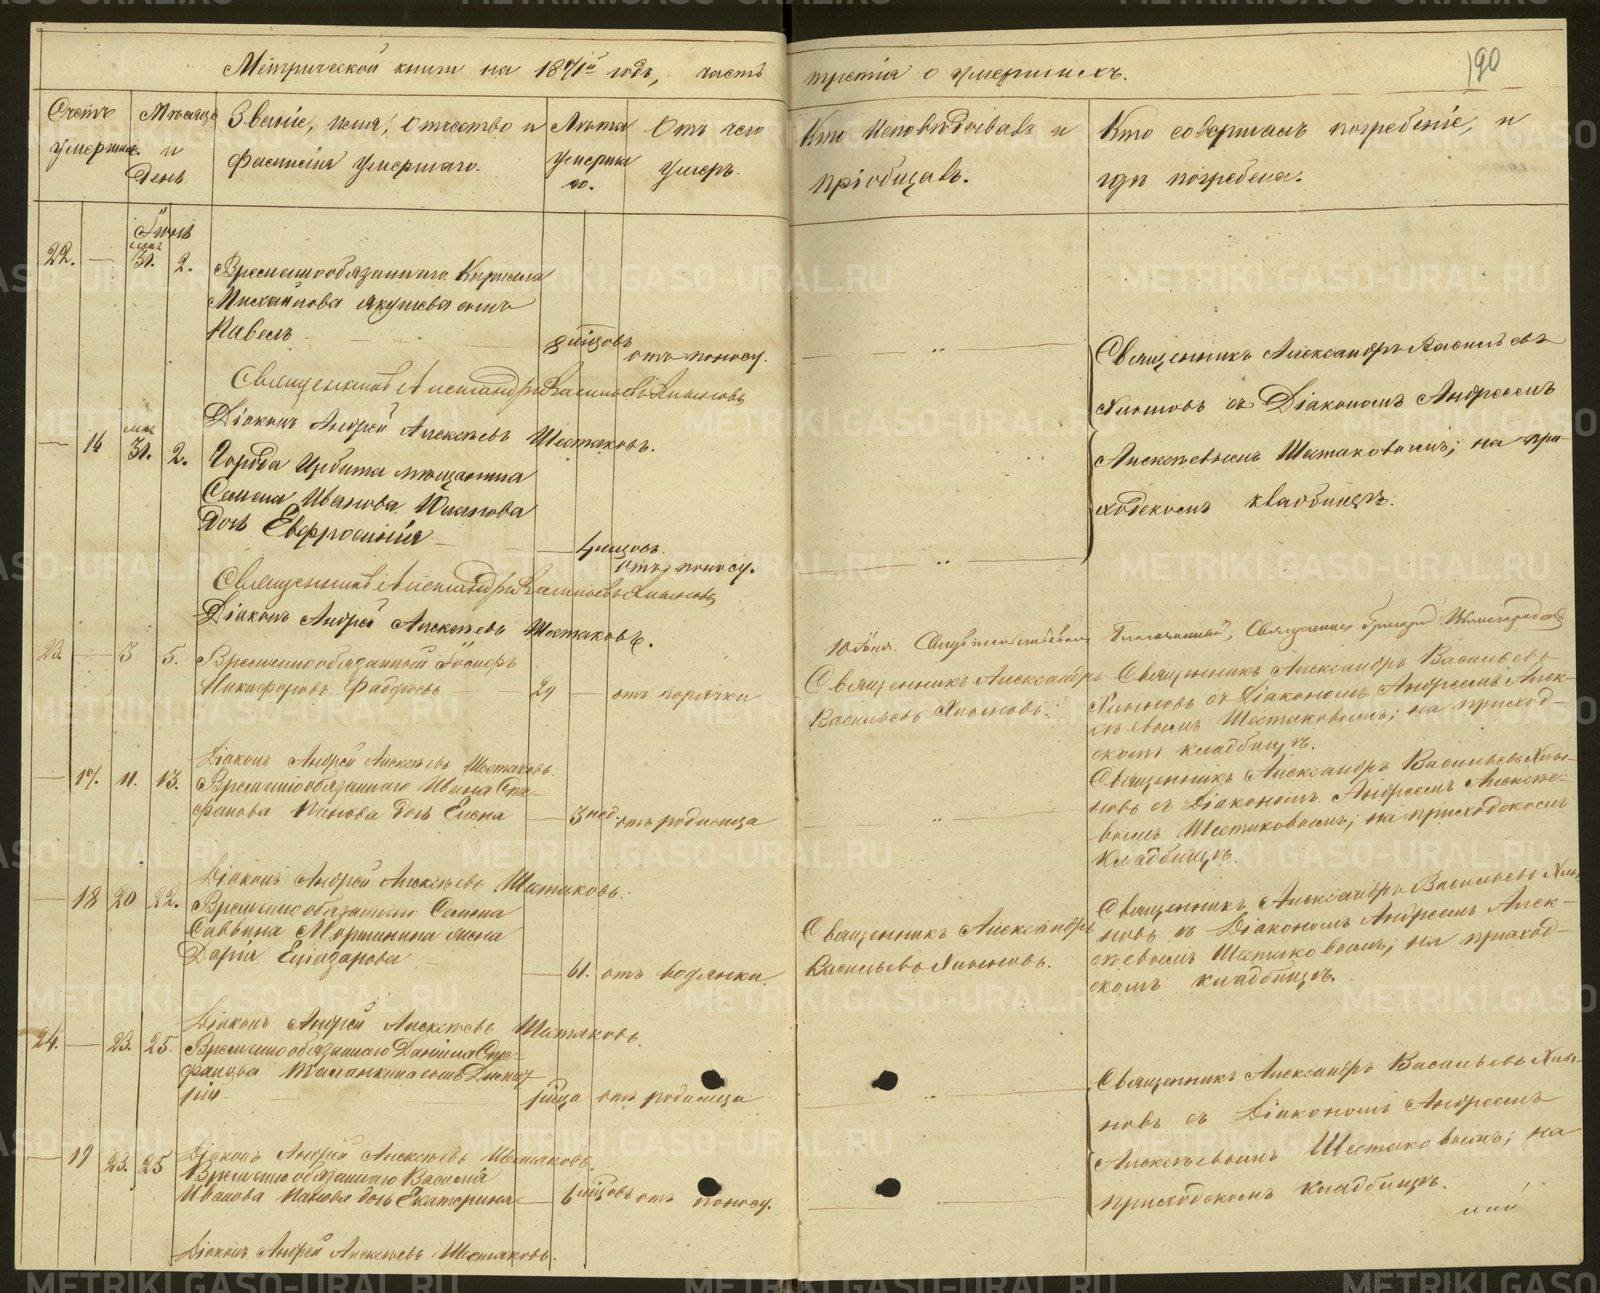 Метрической книги на 1871й годъ, часть третія о умершихъ.
190
Счетъ умершихъ.
Мѣсяцъ и День.
Званіе, имя, отчество и фамилія умершаго.
Лѣта умершаго.
Отъ чего умеръ.
Кто исповѣдовалъ и пріобщалъ.
Кто совершалъ погребеніе, и гдѣ погребены.
Іюнь
22. — мая 31. 2. Временнообязаннаго Кирилла
Михайлова Якушева сынъ
Павелъ
8 мѣсцовъ
отъ поносу.
Священникъ Александръ Васильевъ
Священникъ Александръ Васильевъ Хлыновъ
Хлыновъ съ Діакономъ Андреемъ
Діаконъ Андрей Алексѣевъ Шестаковъ.
— 16 мая 31. 2. Города Ирбита мѣщанина
Алексѣевымъ Шестаковымъ; на при-
Семена Иванова
ходскомъ кладбищѣ.
дочь Евфросинія
4 мѣсцовъ
отъ поносу.
Священникъ Александръ Васильевъ Хлыновъ
Діаконъ Андрей Алексѣевъ Шестаковъ.
10 Іюня. Свидѣтельствовалъ Благочинный, Священникъ Григорій
23. — 3 5. Временнообязанный Іосифъ
Никифоровъ Фадѣевъ
29 — отъ горячки
Священникъ Александръ
Васильевъ Хлыновъ.
Священникъ Александръ Васильевъ
Хлыновъ съ Діакономъ Андреемъ Алек-
сѣевымъ Шестаковымъ; на приход-
скомъ кладбищѣ.
Діаконъ Андрей Алексѣевъ Шестаковъ.
— 17. 11. 13. Временнообязаннаго Ивана Сте-
фанова Панова дочь Елена
— 3 нед. отъ родимца
Священникъ Александръ Васильевъ Хлы-
новъ съ Діакономъ Андреемъ Алексѣе-
вымъ Шестаковымъ; на приходскомъ
кладбищѣ.
Діаконъ Андрей Алексѣевъ Шестаковъ.
— 18 20 22. Временнообязаннаго Семена
Саввина жена
Дарія Еліазарова
— 61. отъ водянки.
Священникъ Александръ
Васильевъ Хлыновъ.
Священникъ Александръ Васильевъ Хлы-
новъ съ Діакономъ Андреемъ Алек-
сѣевымъ Шестаковымъ; на приход-
скомъ кладбищѣ.
Діаконъ Андрей Алексѣевъ Шестаковъ.
24. — 23. 25. Временнообязаннаго Даніила Сте-
фанова сынъ
отъ родимца
Священникъ Александръ Васильевъ Хлы-
новъ съ Діакономъ Андреемъ
Діаконъ Андрей Алексѣевъ Шестаковъ.
Алексѣевымъ Шестаковымъ; на
— 19 23. 25 Временнообязаннаго Василія
Иванова Панова дочь Екатерина
— 6 мѣсцовъ отъ поносу.
приходскомъ кладбищѣ.
Діаконъ Андрей Алексѣевъ Шестаковъ.
METRIKI.GASO-URAL.RU